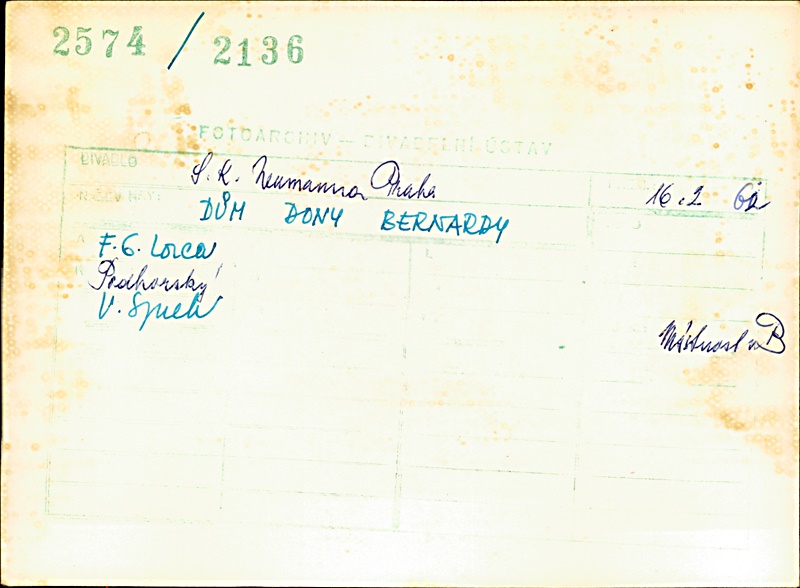 2574 / 2136
FOTOARCHIV — DIVADELNÍ ÚSTAV
DIVADLO S. K. Neumanna Praha 16. 2 62
NÁZEV DŮM DONY BERNARDY
F. G. Lorca
Podhorský
V. Špuch